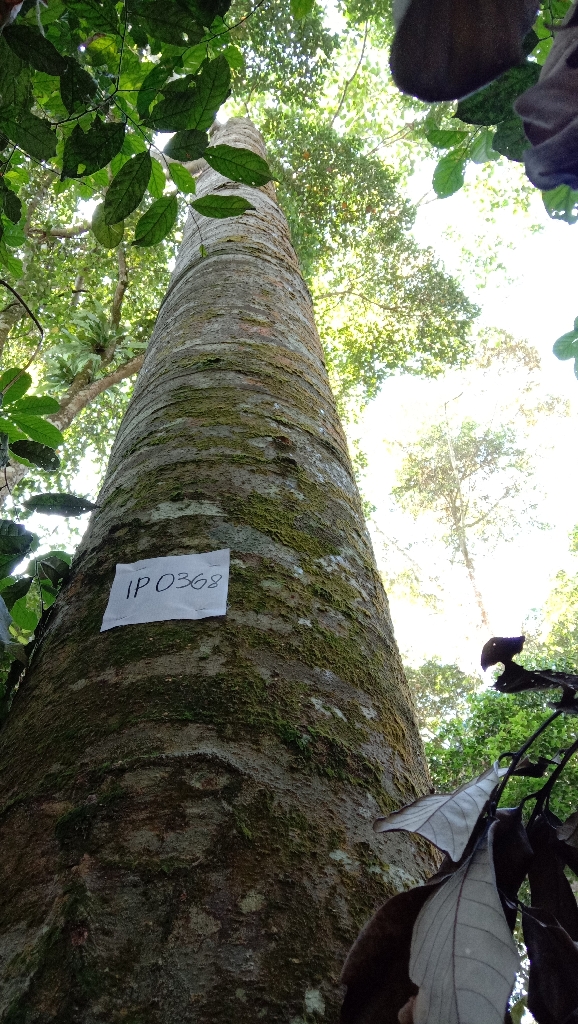 IP 0368